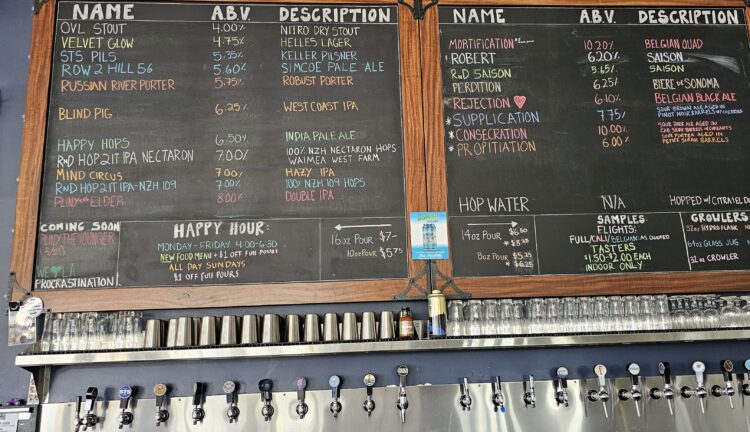 NAME A.B.V. DESCRIPTION
OVL STOUT 4.00% NITRO DRY STOUT
VELVET GLOW 4.75% HELLES LAGER
STS PILS 5.35% KELLER PILSNER
ROW 2 HILL 56 5.60% SIMCOE PALE ALE
RUSSIAN RIVER PORTER 5.75% ROBUST PORTER
BLIND PIG 6.25% WEST COAST IPA
HAPPY HOPS 6.50% INDIA PALE ALE
RND HOP 2 IT IPA NECTARON 7.00% 100% NZH NECTARON HOPS
WAIMEA WEST FARM
MIND CIRCUS 7.00% HAZY IPA
RND HOP 2 IT IPA-NZH 109 7.00% 100% NZH 109 HOPS
PLINY THE ELDER 8.00% DOUBLE IPA
COMING SOON
PLINY THE YOUNGER
WE LA
PROCRASTINATION
HAPPY HOUR:
MONDAY-FRIDAY 4:00-6:30
NEW FOOD MENU + $1 OFF FULL POURS
ALL DAY SUNDAYS
$1 OFF FULL POURS
16oz POUR $7-
10oz POUR $5.75
NAME A.B.V. DESCRIPTION
MORTIFICATION 10.20% BELGIAN QUAD
ROBERT 6.20% SAISON
RND SAISON 5.65% SAISON
PERDITION 6.25% BIERE DE SONOMA
REJECTION 6.10% BELGIAN BLACK ALE
*SUPPLICATION 7.75% SOUR BROWN ALE AGED IN
PINOT NOIR BARRELS W/ CHERRIES
*CONSECRATION 10.00% SOUR DARK ALE AGED IN
CAB SAUV BARRELS W/ CURRANTS
*PROPITIATION 6.00% SOUR PORTER AGED IN
PETITE SIRAH BARRELS
HOP WATER N/A HOPPED W/ CITRA
14oz POUR $6.50
* $8.25
8oz POUR $5.25
* $6.25
SAMPLES:
FLIGHTS:
FULL/CALI/BELGIAN
TASTERS
$1.50-$2.00 EACH
INDOOR ONLY
GROWLERS
32oz HYDRO FLASK
64oz GLASS JUG
32oz CROWLER